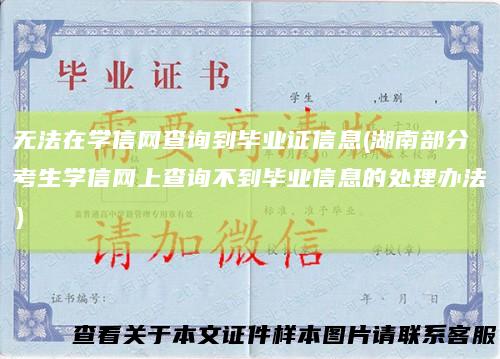 毕业证书
学生
性别
需要高清版
无法在学信网查询到毕业证信息(湖南部分
考生学信网上查询不到毕业信息的处理办法
)
标准,准予毕业
盖普通高中学籍管理专用章有效
请加微信
学校(章)
证书编号:
年 月 日
查看关于本文证件样本图片请联系客服